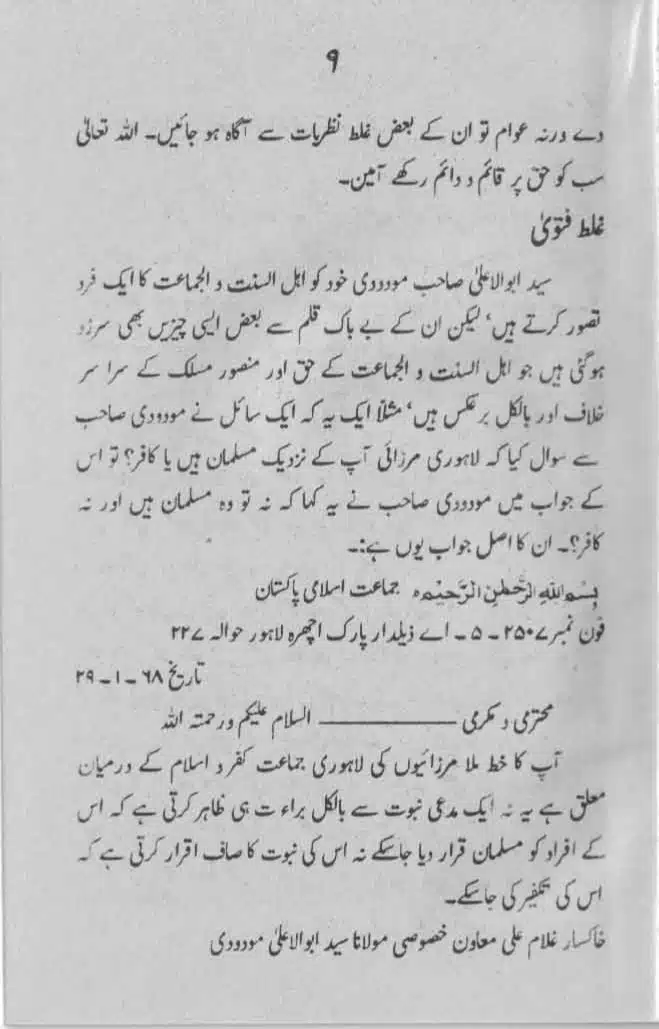 ۹
دے ورنہ عوام تو ان کے بعض غلط نظریات سے آگاہ ہو جائیں۔ اللہ تعالیٰ
سب کو حق پر قائم و دائم رکھے آمین۔
غلط فتویٰ
سید ابوالاعلیٰ صاحب مودودی خود کو اہل السنت و الجماعت کا ایک فرد
تصور کرتے ہیں' لیکن ان کے بے باک قلم سے بعض ایسی چیزیں بھی سرزد
ہوگئی ہیں جو اہل السنت و الجماعت کے حق اور منصور مسلک کے سراسر
خلاف اور بالکل برعکس ہیں' مثلاً ایک یہ کہ ایک سائل نے مودودی صاحب
سے سوال کیا کہ لاہوری مرزائی آپ کے نزدیک مسلمان ہیں یا کافر؟ تو اس
کے جواب میں مودودی صاحب نے یہ کہا کہ نہ تو وہ مسلمان ہیں اور نہ
کافر؟۔ ان کا اصل جواب یوں ہے:۔
بِسْمِ اللهِ الرَّحْمٰنِ الرَّحِيْمِ ○ جماعت اسلامی پاکستان
فون نمبر ۲۵۰۷ ۔ ۵ ۔ اے ذیلدار پارک اچھرہ لاہور حوالہ ۲۲۷
تاریخ ۶۸ ۔ ۱ ۔ ۲۹
محترمی و مکرمی ــــــــــــــ السلام علیکم ورحمتہ اللہ
آپ کا خط ملا مرزائیوں کی لاہوری جماعت کفر و اسلام کے درمیان
معلق ہے یہ نہ ایک مدعی نبوت سے بالکل براءت ہی ظاہر کرتی ہے کہ اس
کے افراد کو مسلمان قرار دیا جاسکے نہ اس کی نبوت کا صاف اقرار کرتی ہے کہ
اس کی تکفیر کی جاسکے۔
خاکسار غلام علی معاون خصوصی مولانا سید ابوالاعلیٰ مودودی